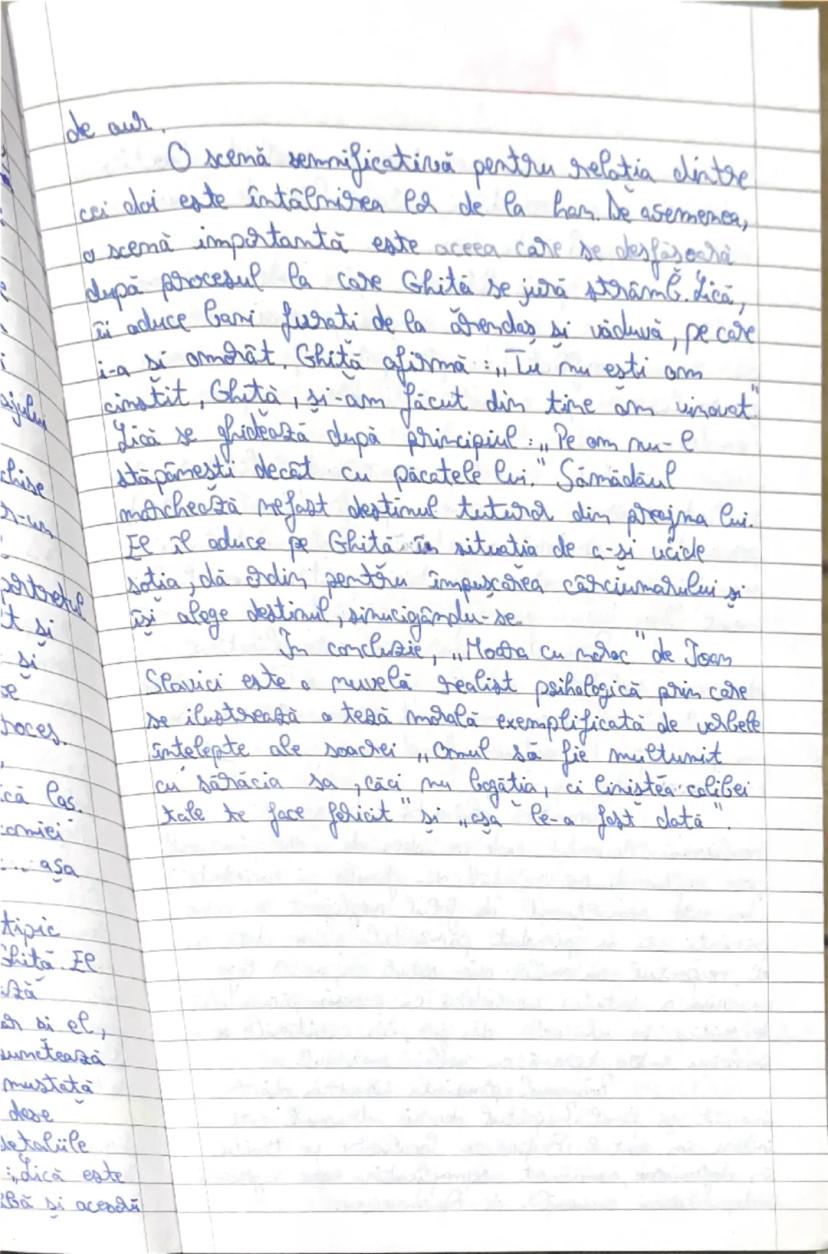 de aur.
O scenă semnificativă pentru relația dintre
cei doi este întâlnirea lor de la han. De asemenea,
o scenă importantă este aceea care se desfășoară
după procesul la care Ghită se jură strâmb. Lică,
îi aduce bani furati de la arendaș și văduvă, pe care
i-a și omorât. Ghiță afirmă : „Tu nu ești om
cinstit, Ghiță, și-am făcut din tine om vinovat"
Lică se ghidează după principiul : „Pe om nu-l
stăpânești decât cu păcatele lui." Sămădăul
marchează nefast destinul tuturor din preajma lui.
El îl aduce pe Ghiță în situatia de a-și ucide
soția, dă ordin pentru împușcarea cârciumarului și
își alege destinul, sinucigându-se.
In concluzie, „Moara cu noroc" de Ioan
Slavici este o nuvelă realist psihologică prin care
se ilustrează o teză morală exemplificată de vorbele
intelepte ale soacrei „Omul să fie multumit
cu sărăcia sa, căci nu bogăția, ci liniștea colibei
tale te face fericit" și „așa le-a fost dată".
ajului
chise
portretul
t și
și
se
roces.
ică las.
omiei
... așa
tipic
Ghită. El
ză
și el,
mustată
dese
detaliile
: „Lică este
ibă și aceeași